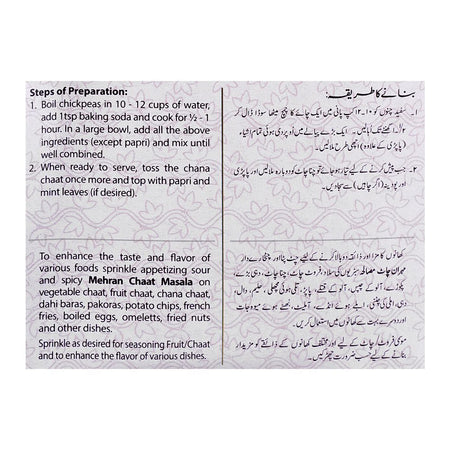 Steps of Preparation:
1. Boil chickpeas in 10 - 12 cups of water,
add 1tsp baking soda and cook for ½ - 1
hour. In a large bowl, add all the above
ingredients (except papri) and mix until
well combined.
2. When ready to serve, toss the chana
chaat once more and top with papri and
mint leaves (if desired).
To enhance the taste and flavor of
various foods sprinkle appetizing sour
and spicy Mehran Chaat Masala on
vegetable chaat, fruit chaat, chana chaat,
dahi baras, pakoras, potato chips, french
fries, boiled eggs, omeletts, fried nuts
and other dishes.
Sprinkle as desired for seasoning Fruit/Chaat
and to enhance the flavor of various dishes.
بنانے کا طریقہ:
۱۔ سفید چنوں کو ۱۰-۱۲ کپ پانی میں ایک چائے کا چمچ میٹھا سوڈا ڈال کر
½ سے ۱ گھنٹے تک ابالیں۔ ایک بڑے پیالے میں اوپر دی ہوئی تمام اشیاء
(پاپڑی کے علاوہ) اچھی طرح ملالیں۔
۲۔ جب پیش کرنے کے لیے تیار ہو جائے تو چنا چاٹ کو دوبارہ ملالیں اور پاپڑی
اور پودینہ (اگر چاہیں) سے سجادیں۔
کھانوں کا مزا اور ذائقہ دوبالا کرنے کے لیے چٹ پٹا اور چٹخارے دار
مہران چاٹ مصالحہ سبزیوں کی سلاد، فروٹ چاٹ، چنا چاٹ، دہی بڑے،
پکوڑے، آلو کے چپس، آلو کے قتلے، پاپڑ، تلی ہوئی مچھلی، حلیم، دال،
دہی، املی کی چٹنی، ابلے ہوئے انڈے، آملیٹ، بھنے ہوئے میوہ جات
اور دوسرے بہت سے کھانوں میں استعمال کریں۔
موسمی فروٹ/چاٹ کے لیے اور مختلف کھانوں کے ذائقے کو مزیدار
بنانے کے لیے حسب ضرورت چھڑکیں۔